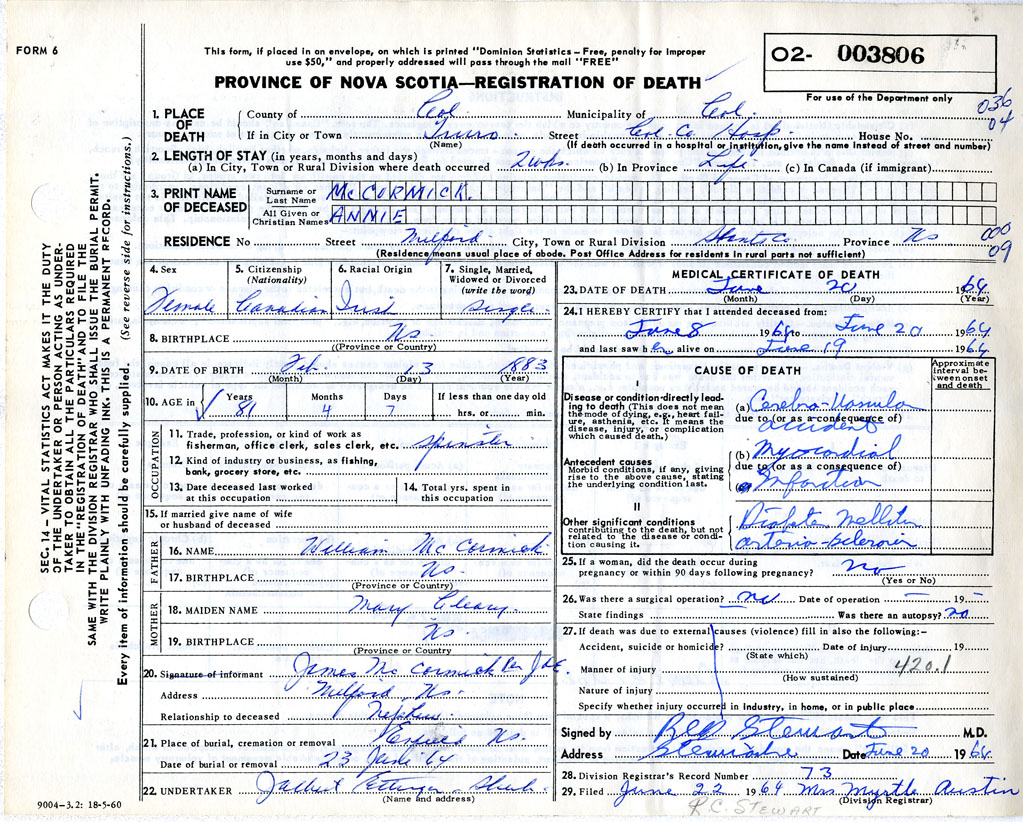 FORM 6
This form, if placed in an envelope, on which is printed "Dominion Statistics – Free, penalty for improper
use $50," and properly addressed will pass through the mail "FREE"
PROVINCE OF NOVA SCOTIA—REGISTRATION OF DEATH
O2- 003806
For use of the Department only
036
04
1. PLACE OF DEATH
County of Col Municipality of Col.
If in City or Town Truro Street Col Co Hosp. House No.
(Name) (If death occurred in a hospital or institution, give the name instead of street and number)
2. LENGTH OF STAY (in years, months and days)
(a) In City, Town or Rural Division where death occurred 2 wks. (b) In Province Life (c) In Canada (if immigrant)
3. PRINT NAME OF DECEASED
Surname or Last Name McCORMICK.
All Given or Christian Names ANNIE
RESIDENCE No Street Milford City, Town or Rural Division Hants Co. Province NS
000
09
(Residence means usual place of abode. Post Office Address for residents in rural parts not sufficient)
4. Sex
Female
5. Citizenship
(Nationality)
Canadian
6. Racial Origin
Irish
7. Single, Married, Widowed or Divorced
(write the word)
Single
8. BIRTHPLACE NS
(Province or Country)
9. DATE OF BIRTH Feb. 13 1883
(Month) (Day) (Year)
10. AGE in
Years 81
Months 4
Days 7
If less than one day old
hrs. or min.
OCCUPATION
11. Trade, profession, or kind of work as
fisherman, office clerk, sales clerk, etc. Spinster
12. Kind of industry or business, as fishing,
bank, grocery store, etc.
13. Date deceased last worked
at this occupation
14. Total yrs. spent in
this occupation
15. If married give name of wife
or husband of deceased
FATHER
16. NAME William McCormick
17. BIRTHPLACE NS.
(Province or Country)
MOTHER
18. MAIDEN NAME Mary Cleary.
19. BIRTHPLACE NS.
(Province or Country)
20. Signature of informant James McCormick Per
Address Milford, NS.
Relationship to deceased Nephew
21. Place of burial, cremation or removal NS.
Date of burial or removal 23 June 64
22. UNDERTAKER Ettinger
(Name and address)
9004-3.2: 18-5-60
MEDICAL CERTIFICATE OF DEATH
23. DATE OF DEATH June 20 1964
(Month) (Day) (Year)
24. I HEREBY CERTIFY that I attended deceased from:
June 8 1964 to June 20 1964
and last saw her alive on June 19 1964
CAUSE OF DEATH
Approximate interval between onset and death
I
Disease or condition directly leading to death (This does not mean the mode of dying, e.g., heart failure, asthenia, etc. It means the disease, injury, or complication which caused death.)
(a) Cerebro-Vascular
due to (or as a consequence of)
accident
Antecedent causes
Morbid conditions, if any, giving rise to the above cause, stating the underlying condition last.
(b) Myocardial
due to (or as a consequence of)
(c) Infarction
II
Other significant conditions
contributing to the death, but not related to the disease or condition causing it.
Diabetes Mellitus
arterio-sclerosis
25. If a woman, did the death occur during
pregnancy or within 90 days following pregnancy? No
(Yes or No)
26. Was there a surgical operation? no Date of operation — 19 —
State findings Was there an autopsy? no
27. If death was due to external causes (violence) fill in also the following:–
Accident, suicide or homicide? Date of injury 19
(State which)
Manner of injury 420.1
(How sustained)
Nature of injury
Specify whether injury occurred in industry, in home, or in public place
Signed by Stewart M.D.
Address Stewiacke Date June 20 1964
28. Division Registrar's Record Number 73
29. Filed June 22 1964 Mrs Myrtle Austin
(Division Registrar)
R.C. STEWART
SEC. 14 – VITAL STATISTICS ACT MAKES IT THE DUTY
OF THE UNDERTAKER OR PERSON ACTING AS UNDER-
TAKER TO OBTAIN ALL THE PARTICULARS REQUIRED
IN THE "REGISTRATION OF DEATH" AND TO FILE THE
SAME WITH THE DIVISION REGISTRAR WHO SHALL ISSUE THE BURIAL PERMIT.
WRITE PLAINLY WITH UNFADING INK. THIS IS A PERMANENT RECORD.
Every item of information should be carefully supplied. (See reverse side for instructions.)